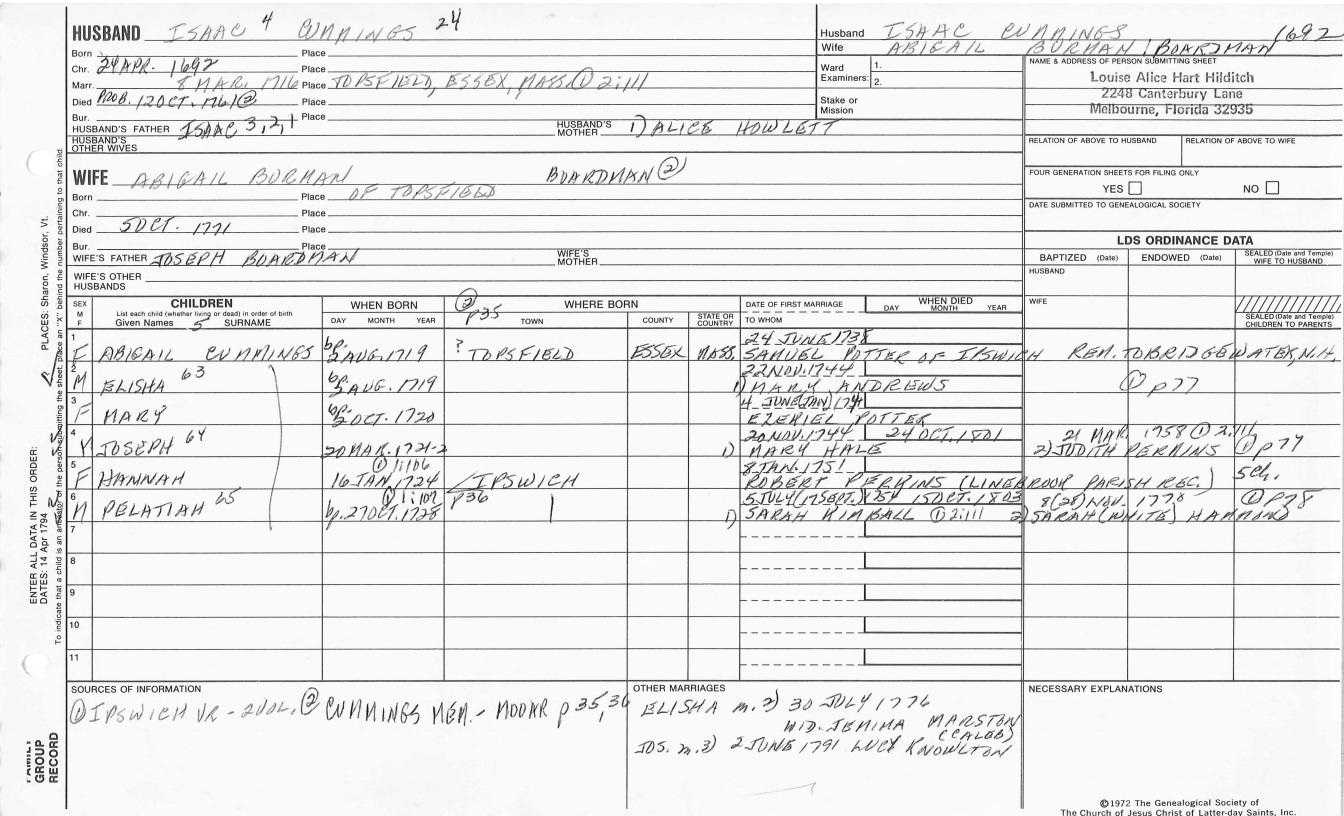 HUSBAND ISAAC 4 CUMMINGS 24
Born Place
Chr. 24 APR. 1692 Place
Marr. 8 MAR. 1716 Place TOPSFIELD, ESSEX, MASS. ① 2:111
Died PROB. 12 OCT. 1761 ② Place
Bur. Place
HUSBAND'S FATHER ISAAC 3,2,1 HUSBAND'S MOTHER 1) ALICE HOWLETT
HUSBAND'S OTHER WIVES
WIFE ABIGAIL BURMAN BOARDMAN ②
Born Place OF TOPSFIELD
Chr. Place
Died 5 OCT. 1771 Place
Bur. Place
WIFE'S FATHER JOSEPH BOARDMAN WIFE'S MOTHER
WIFE'S OTHER HUSBANDS
Husband ISAAC CUMMINGS 1692
Wife ABIGAIL BURMAN / BOARDMAN
Ward Examiners: 1.
2.
Stake or Mission
NAME & ADDRESS OF PERSON SUBMITTING SHEET
Louise Alice Hart Hilditch
2248 Canterbury Lane
Melbourne, Florida 32935
RELATION OF ABOVE TO HUSBAND RELATION OF ABOVE TO WIFE
FOUR GENERATION SHEETS FOR FILING ONLY
YES NO
DATE SUBMITTED TO GENEALOGICAL SOCIETY
LDS ORDINANCE DATA
BAPTIZED (Date) ENDOWED (Date) SEALED (Date and Temple) WIFE TO HUSBAND
HUSBAND
WIFE
SEALED (Date and Temple) CHILDREN TO PARENTS
SEX M F
CHILDREN
List each child (whether living or dead) in order of birth
Given Names 5 SURNAME
WHEN BORN
DAY MONTH YEAR
② p35
WHERE BORN
TOWN COUNTY STATE OR COUNTRY
DATE OF FIRST MARRIAGE
TO WHOM
WHEN DIED
DAY MONTH YEAR
1 24 JUNE 1738
F ABIGAIL CUMMINGS bp. 2 AUG. 1719 ? TOPSFIELD ESSEX MASS. SAMUEL POTTER OF IPSWICH REM. TO BRIDGEWATER, N.H.
2 22 NOV. 1744
M ELISHA 63 bp. 2 AUG. 1719 1) MARY ANDREWS ① p77
3 4 JUNE (JAN) 174
F MARY bp. 2 OCT. 1720 EZEKIEL POTTER
4 20 NOV. 1744 24 OCT. 1801 21 MAR. 1758 ① 2:111
M JOSEPH 64 20 MAR. 1721-2 1) MARY HALE 2) JUDITH PERKINS ① p77
5 ① 1:106 8 JAN. 1751
F HANNAH 16 JAN. 1724 /IPSWICH ROBERT PERKINS (LINEBROOK PARISH REG.) 5ch.
6 ① 1:107 p36 5 JULY (17 SEPT.) 1754 15 OCT. 1803 8 (28) NOV. 1778 ① p78
M PELATIAH 65 bp. 27 OCT. 1728 1) SARAH KIMBALL ① 2:111 2) SARAH (WHITE) HAMMOND
7
8
9
10
11
SOURCES OF INFORMATION
① IPSWICH VR - 2 VOL. ② CUMMINGS MEM. - MOOAR p 35,36
OTHER MARRIAGES
ELISHA m. 2) 30 JULY 1776
WID. JEMIMA MARSTON
(CALEB)
JOS. m. 3) 2 JUNE 1791 LUCY KNOWLTON
NECESSARY EXPLANATIONS
©1972 The Genealogical Society of
The Church of Jesus Christ of Latter-day Saints, Inc.
ENTER ALL DATA IN THIS ORDER:
DATES: 14 Apr 1794 PLACES: Sharon, Windsor, Vt.
To indicate that a child is an ancestor of the person submitting the sheet, place an "X" behind the number pertaining to that child.
FAMILY GROUP RECORD